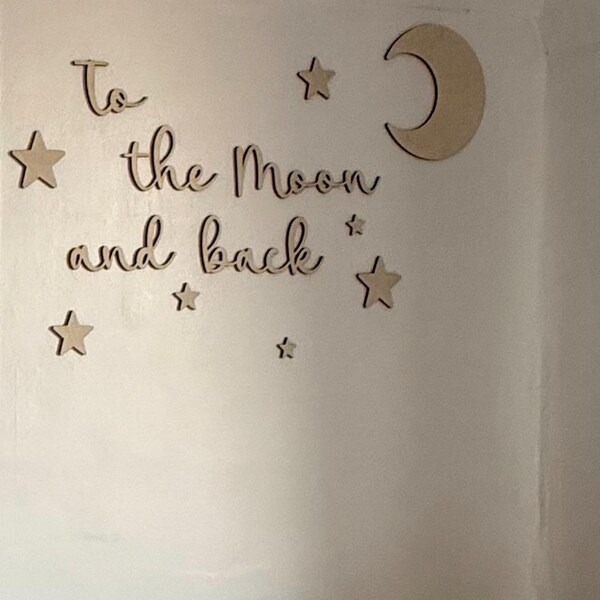 To
the Moon
and back